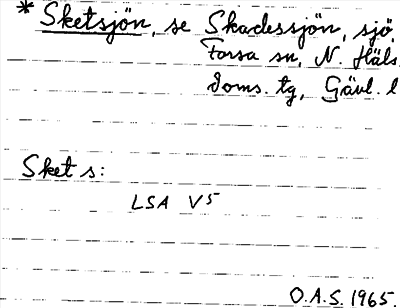 * Sketsjön, se Skadessjön, sjö,
Forsa sn, N. Häls.
doms. tg, Gävl. l
Sket s:
LSA V5
O.A.S. 1965.